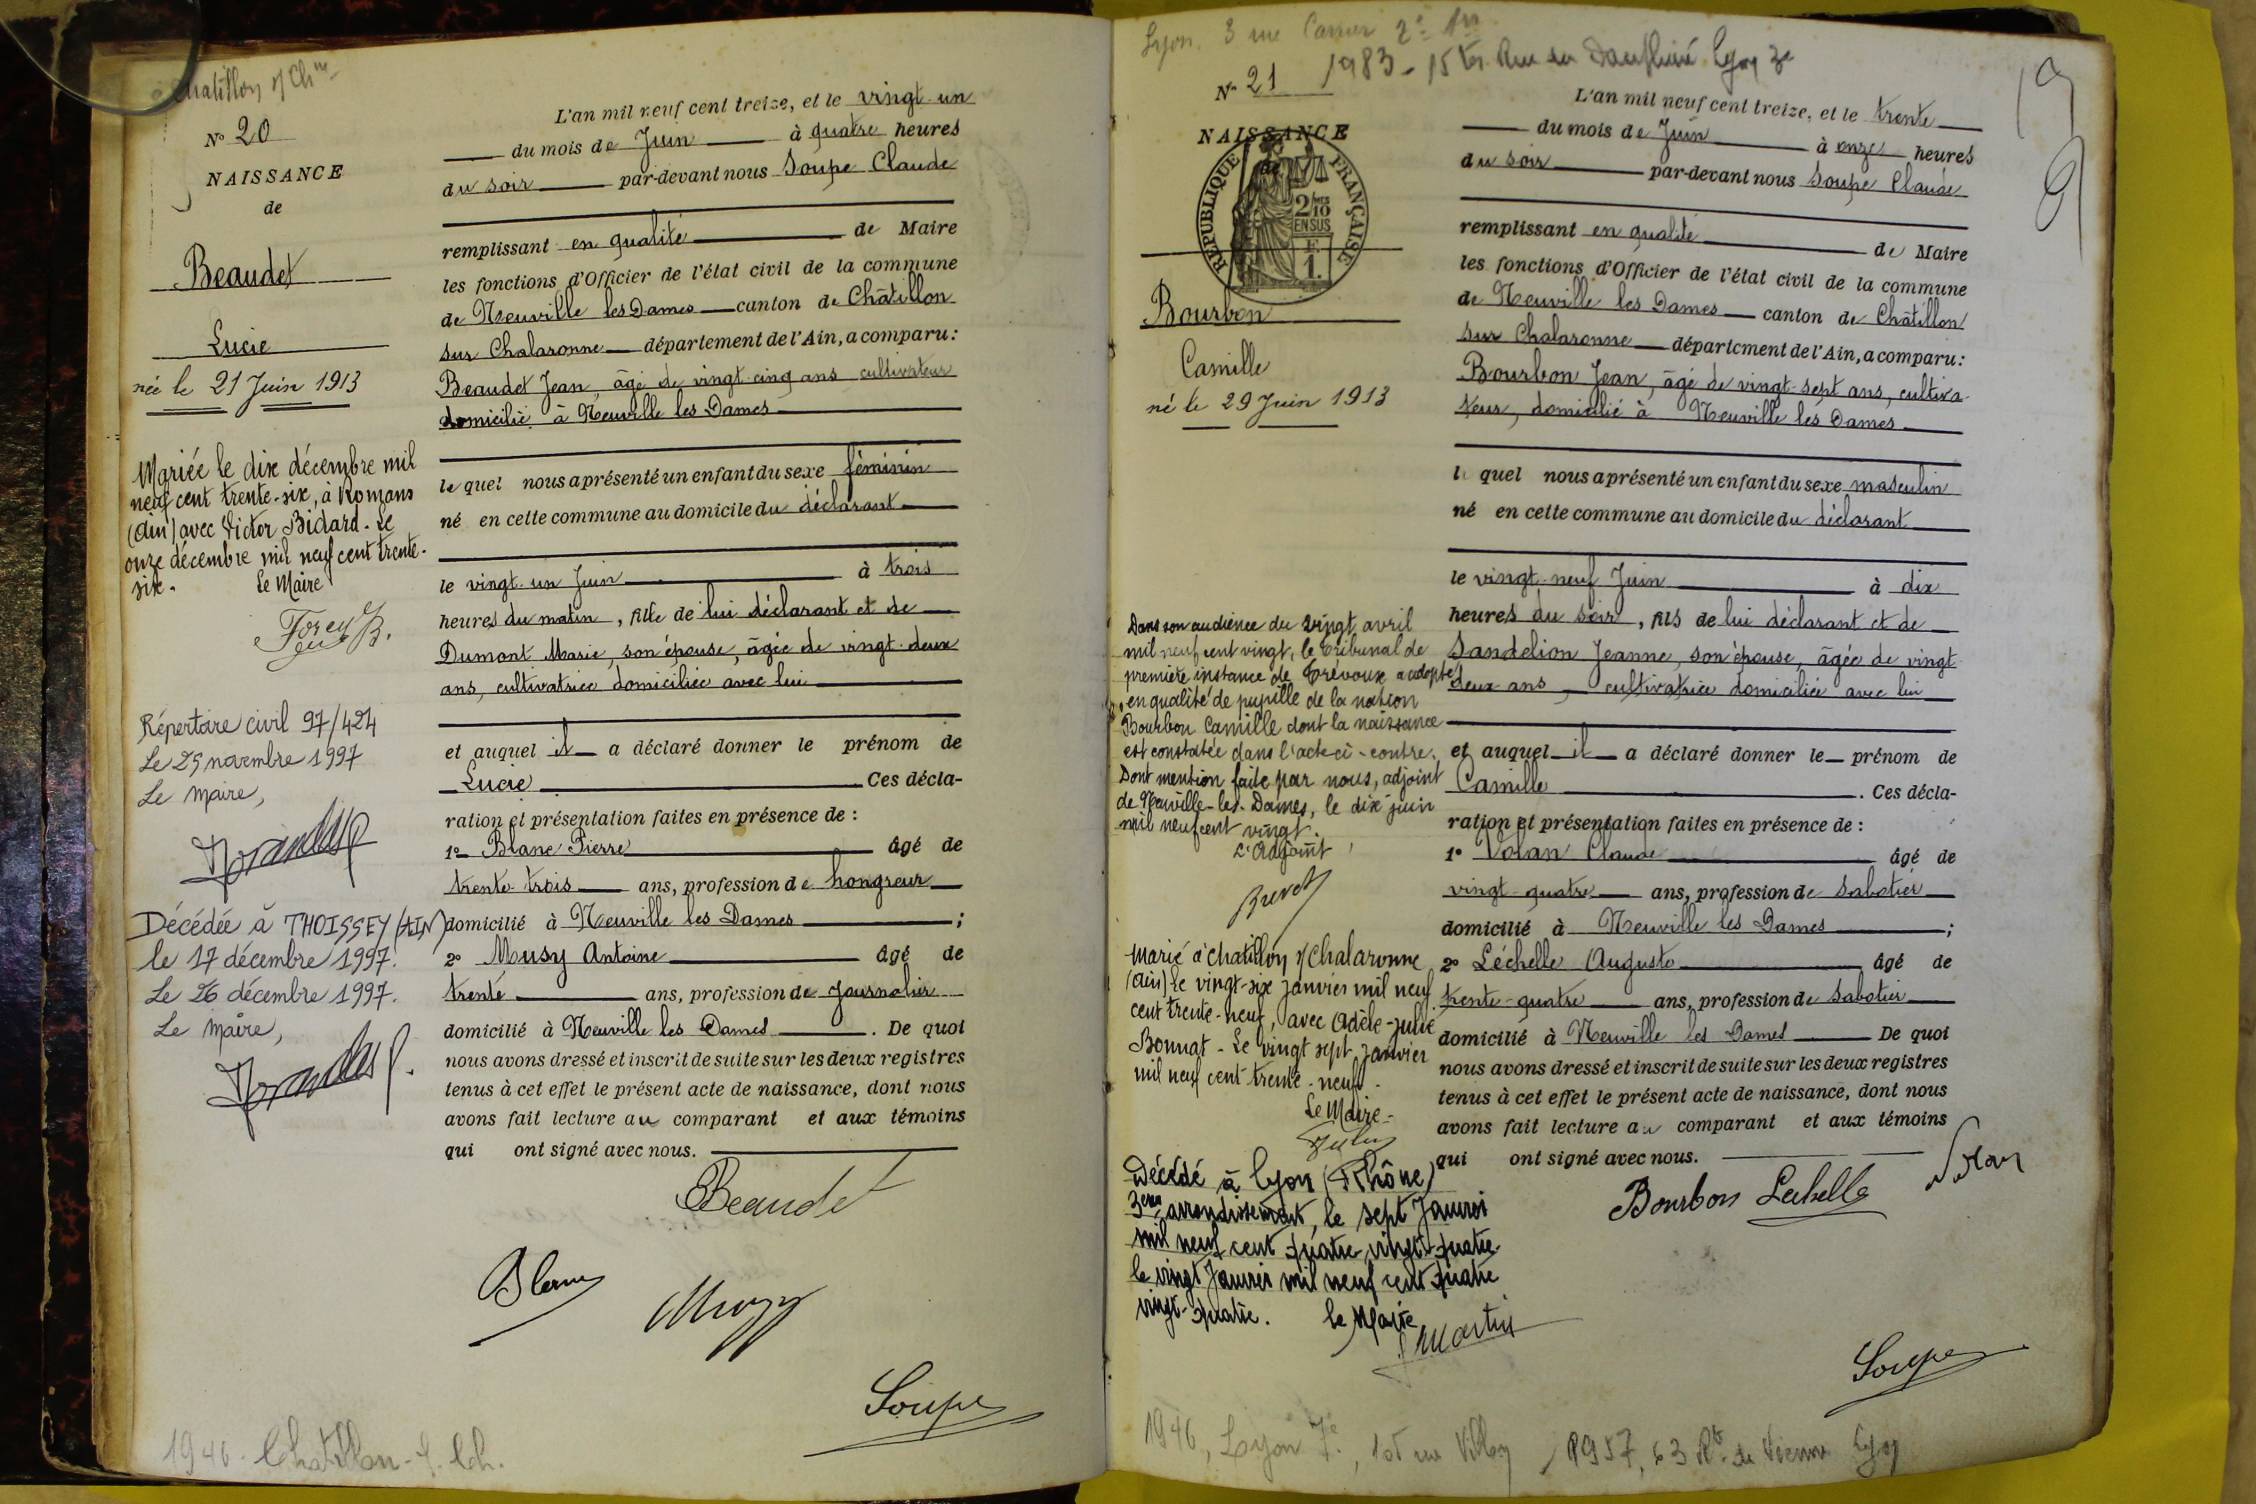 Chatillon s/ Ch^ne
N° 20
NAISSANCE
de
Beaudet
Lucie
née le 21 Juin 1913
Mariée le dix décembre mil
neuf cent trente-six, à Romans
(Ain) avec Victor Bidard - Le
onze décembre mil neuf cent trente-
six. Le Maire
Répertoire civil 97/424
Le 25 novembre 1997
Le Maire,
Décédée à THOISSEY (AIN)
le 17 décembre 1997.
Le 26 décembre 1997.
Le Maire,
L'an mil neuf cent treize, et le vingt-un
du mois de Juin à quatre heures
du soir par-devant nous Soupe Claude
remplissant en qualité de Maire
les fonctions d'Officier de l'état civil de la commune
de Neuville les Dames canton de Châtillon
sur Chalaronne département de l'Ain, a comparu:
Beaudet Jean, âgé de vingt-cinq ans cultivateur
domicilié à Neuville les Dames
le quel nous a présenté un enfant du sexe féminin
né en cette commune au domicile du déclarant
le vingt-un Juin à trois
heures du matin, fille de lui déclarant et de
Dumont Marie, son épouse, âgée de vingt-deux
ans, cultivatrice domiciliée avec lui
et auquel il a déclaré donner le prénom de
Lucie Ces décla-
ration et présentation faites en présence de :
1° Blanc Pierre âgé de
trente-trois ans, profession de hongreur
domicilié à Neuville les Dames ;
2° Musy Antoine âgé de
trente ans, profession de Journalier
domicilié à Neuville les Dames . De quoi
nous avons dressé et inscrit de suite sur les deux registres
tenus à cet effet le présent acte de naissance, dont nous
avons fait lecture au comparant et aux témoins
qui ont signé avec nous.
Beaudet
Blanc
Musy
Soupe
1946. Chatillon-s. Ch.
Lyon. 3 rue Carrier 2e Arr
1983 - 15 ter Rue du Dauphiné Lyon 3e
19
N° 21
NAISSANCE
de
RÉPUBLIQUE FRANÇAISE
2/10
EN SUS
F.
1.
Bourbon
Camille
né le 29 Juin 1913
Dans son audience du vingt avril
mil neuf cent vingt, le Tribunal de
première instance de Trévoux a adopté
en qualité de pupille de la nation
Bourbon Camille dont la naissance
est constatée dans l'acte ci-contre.
Dont mention faite par nous, adjoint
de Neuville-les-Dames, le dix juin
mil neuf cent vingt.
L'Adjoint
Brevet
Marié à Chatillon s/Chalaronne
(Ain) le vingt-six janvier mil neuf
cent trente-neuf, avec Adèle-Julie
Bonnat - Le vingt sept janvier
mil neuf cent trente-neuf -
Le Maire -
Décédé à Lyon (Rhône)
3ème arrondissement, le sept Janvier
mil neuf cent quatre vingt-quatre.
le vingt Janvier mil neuf cent quatre
vingt-quatre. le Maire
Martin
L'an mil neuf cent treize, et le trente
du mois de Juin à onze heures
du soir par-devant nous Soupe Claude
remplissant en qualité de Maire
les fonctions d'Officier de l'état civil de la commune
de Neuville les Dames canton de Châtillon
sur Chalaronne département de l'Ain, a comparu:
Bourbon Jean, âgé de vingt-sept ans, cultiva-
teur, domicilié à Neuville les Dames
le quel nous a présenté un enfant du sexe masculin
né en cette commune au domicile du déclarant
le vingt-neuf Juin à dix
heures du soir, fils de lui déclarant et de
Sandelion Jeanne, son épouse, âgée de vingt-
deux ans, cultivatrice domiciliée avec lui
et auquel il a déclaré donner le prénom de
Camille . Ces décla-
ration et présentation faites en présence de :
1° Volan Claude âgé de
vingt-quatre ans, profession de Sabotier
domicilié à Neuville les Dames ;
2° Léchelle Auguste âgé de
trente-quatre ans, profession de Sabotier
domicilié à Neuville les Dames De quoi
nous avons dressé et inscrit de suite sur les deux registres
tenus à cet effet le présent acte de naissance, dont nous
avons fait lecture au comparant et aux témoins
qui ont signé avec nous.
Volan
Bourbon Léchelle
Soupe
1946, Lyon 7e, 101 rue Villon, 1957, 63 Rte de Vienne Lyon